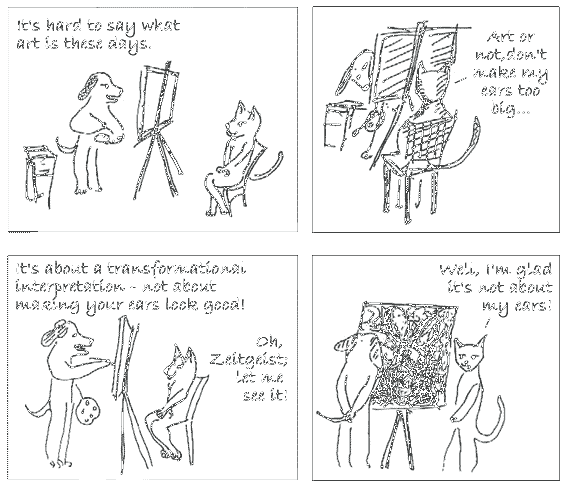 It's hard to say what
art is these days.
Art or
not, don't
make my
ears too
big...
It's about a transformational
interpretation - not about
making your ears look good!
Oh,
Zeitgeist,
let me
see it!
Well, I'm glad
it's not about
my ears!